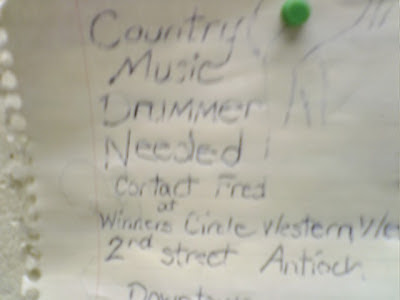 Country
Music
Drummer
Needed
Contact Fred
at
Winners Circle Western We
2nd street Antioch
Downtown